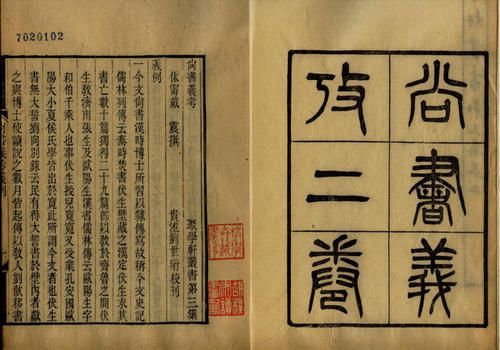 尚書義
攷二卷
7020102
尙書義考 聚學軒叢書第三集
休甯戴 震撰 貴池劉世珩校刊
義例
一今文尙書漢時博士所習以隸傳寫故稱今文史記
儒林列傳云秦時焚書伏生壁藏之漢定伏生求其
書亡數十篇獨得二十九篇卽以敎於齊魯之閒伏
生敎濟南張生及歐陽生漢書儒林傳云歐陽生字
和伯千乘人也事伏生授兒寬寬又受業孔安國歐
陽大小夏侯氏學皆出於寬此所謂今文者也伏生
書無大誓劉向別錄云民有得大誓書於壁內者獻
之與博士使讀說之數月皆起傳以敎人劉歆移書